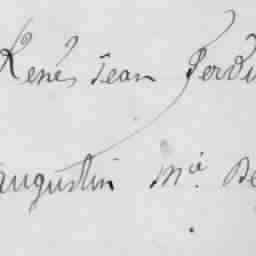 René Jean Ferdi
augustin M.ie De